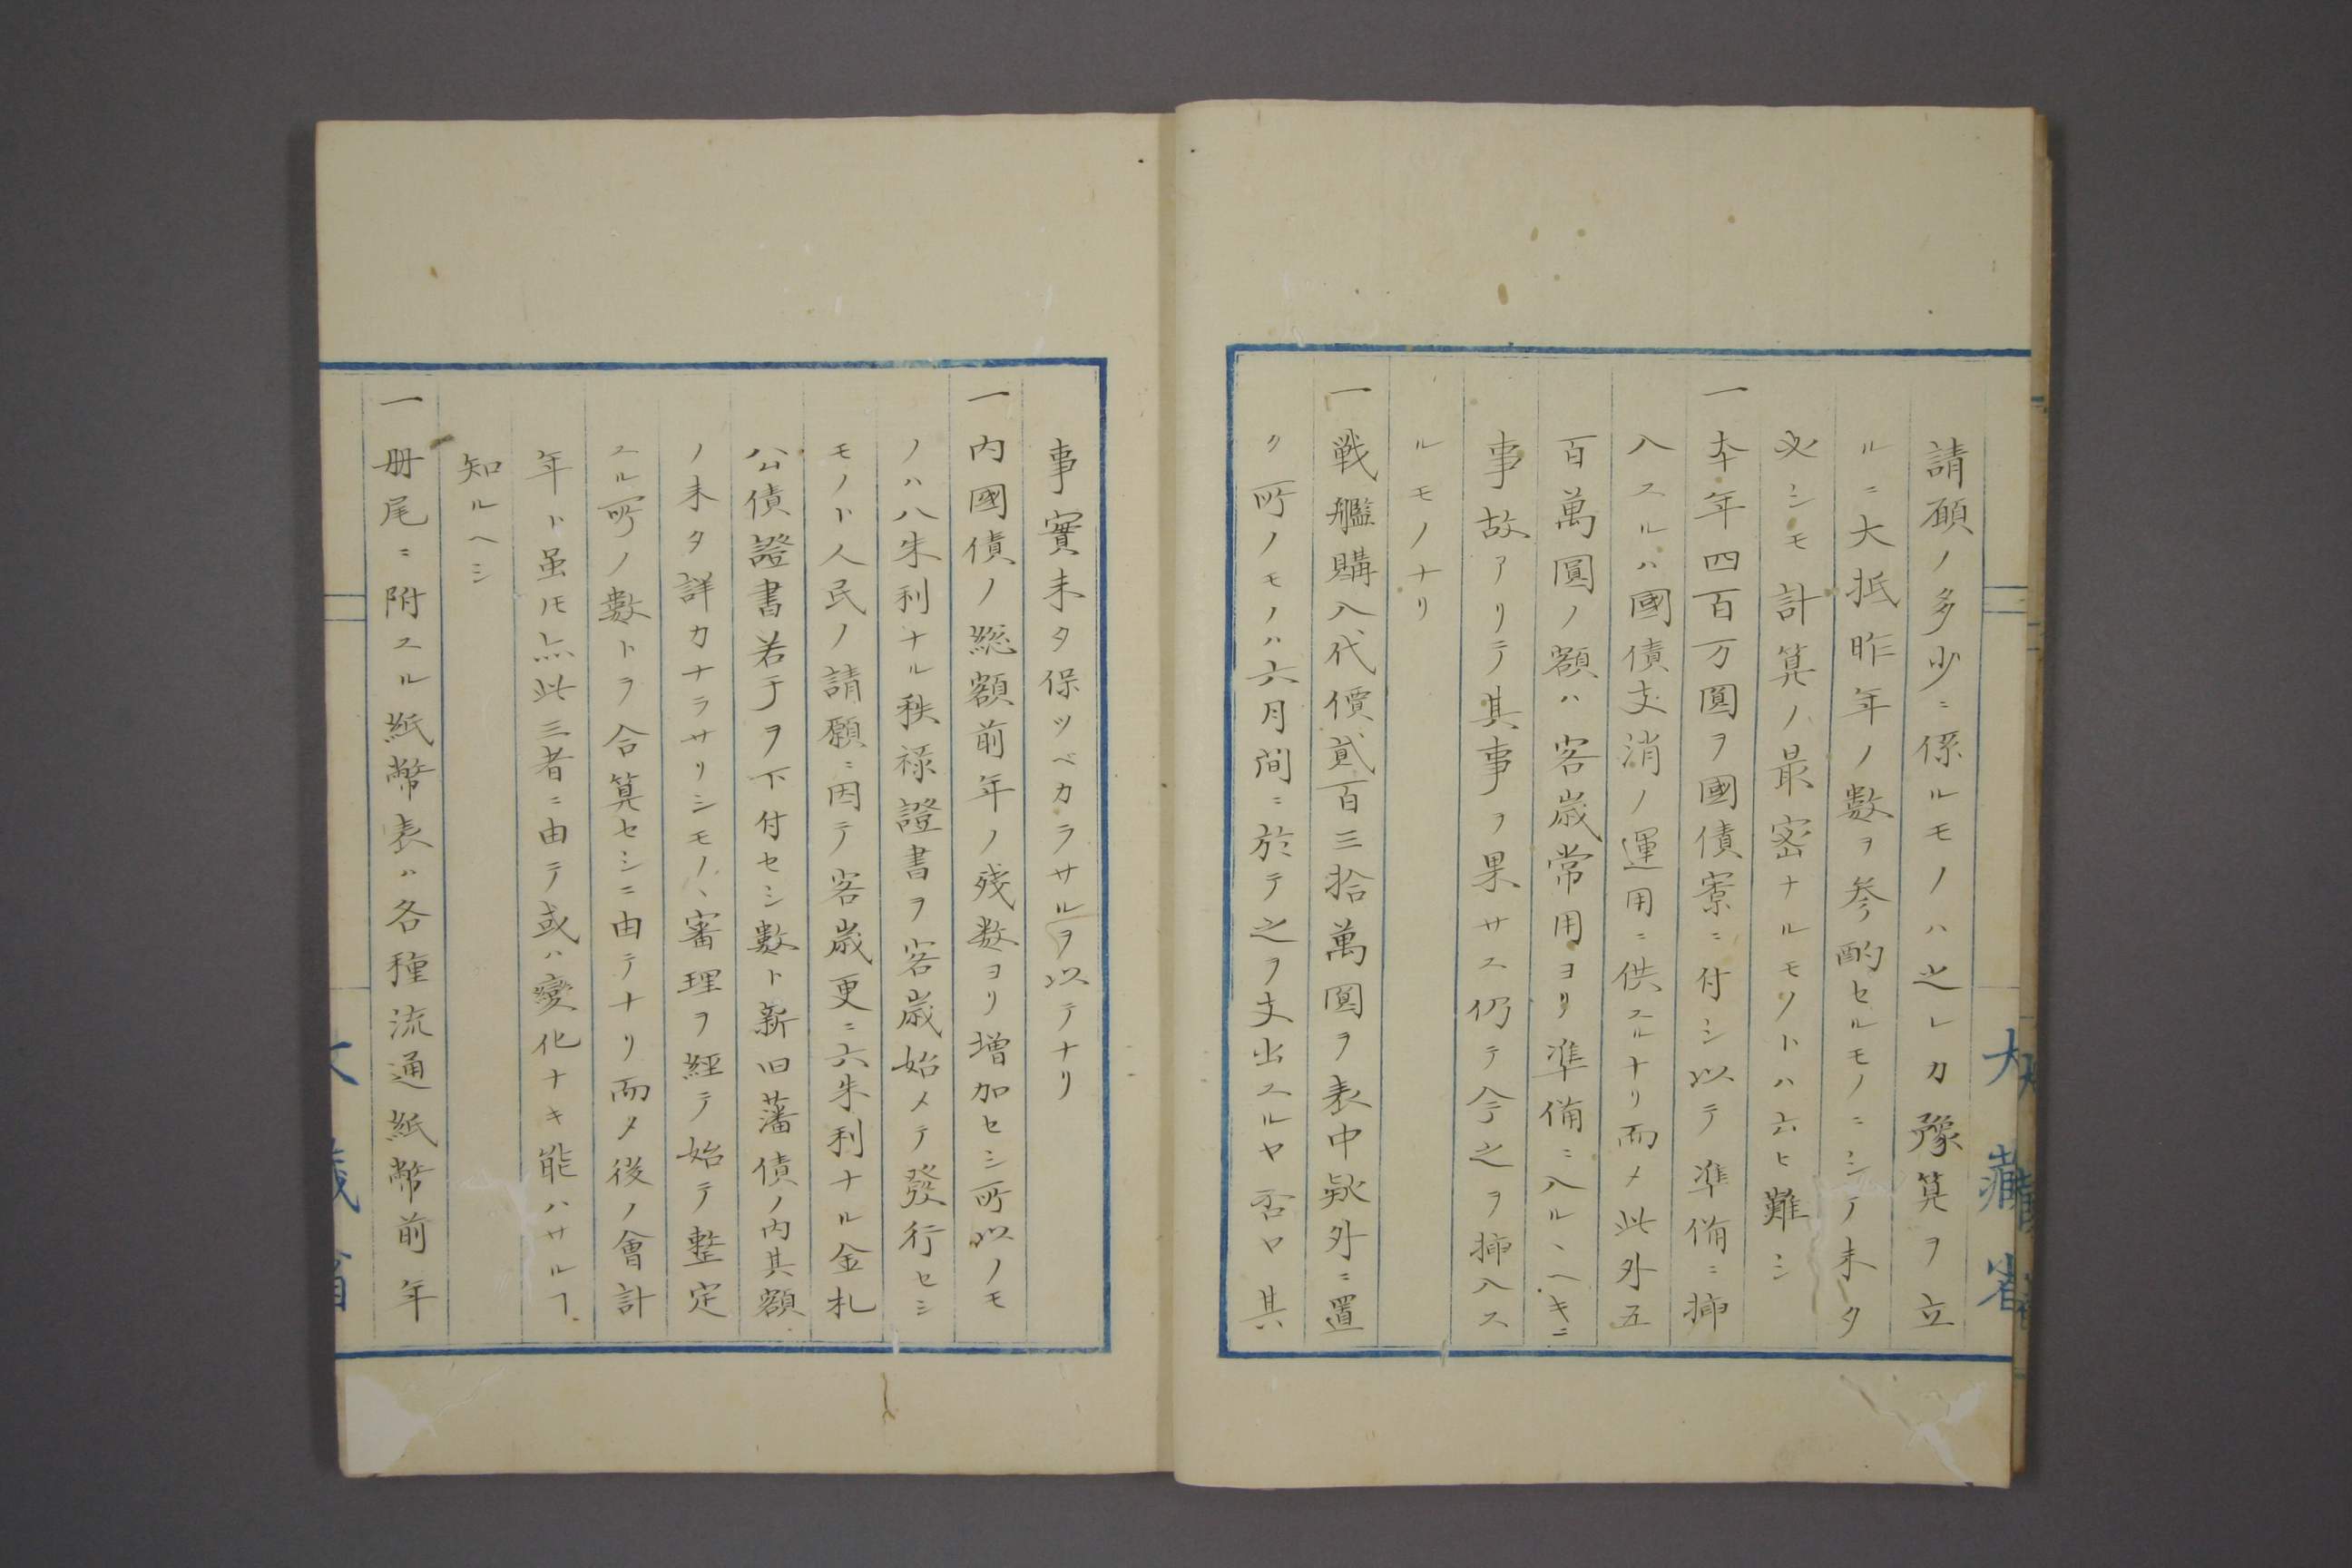 請願ノ多少ニ係ルモノハ之レカ豫算ヲ立
ルニ大抵昨年ノ數ヲ参酌セルモノニシテ未タ
必シモ計算ノ最密ナルモノトハ云ヒ難シ
一本年四百万圓ヲ國債寮ニ付シ以テ準備ニ挿
入スルハ國債支消ノ運用ニ供スルナリ而メ此外五
百萬圓ノ額ハ客歳常用ヨリ準備ニ入ルヽヘキニ
事故アリテ其事ヲ果サス仍テ今之ヲ挿入ス
ルモノナリ
一戦艦購入代價貮百三拾萬圓ヲ表中欵外ニ置
ク所ノモノハ六月間ニ於テ之ヲ支出スルヤ否ヤ其
大藏省
事實未タ保ツベカラサルヲ以テナリ
一内國債ノ総額前年ノ残数ヨリ増加セシ所以ノモ
ノハ八朱利ナル秩禄證書ヲ客歳始メテ發行セシ
モノト人民ノ請願ニ因テ客歳更ニ六朱利ナル金札
公債證書若干ヲ下付セシ數ト新旧藩債ノ内其額
ノ未タ詳カナラサリシモノヽ審理ヲ經テ始テ整定
スル所ノ數トヲ合算セシニ由テナリ而メ後ノ會計
年ト虽𪜈亦此三者ニ由テ或ハ變化ナキ能ハサルヿ
知ルヘシ
一册尾ニ附スル紙幣表ハ各種流通紙幣前年
大藏省